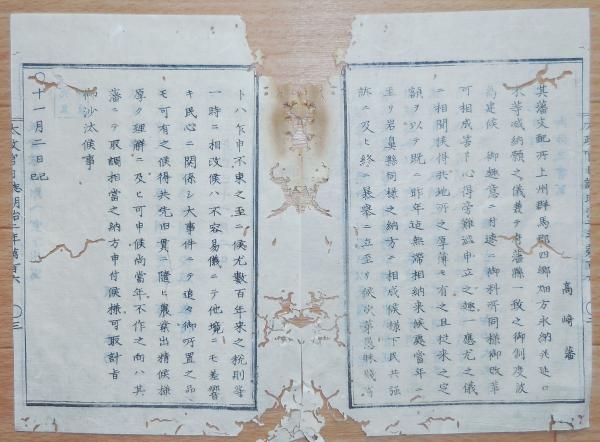 高崎藩
其藩支配所上州群馬郡四郷畑方永納其迚口
米等減納願之儀兼テ府藩縣一致之御制度被
為建候御趣意ニ付速ニ御料所同様御改革
可相成筈ト心得旁難立申立之趣一應尤之儀
ニ相聞候得共地所之厚薄モ有之且従来之定
額ヲ以テ既ニ昨年迠無滞相納来候奥當年ニ
至リ岩鼻縣同様之納方ニ相成候様下民共強
訴ニ及ヒ終ニ暴挙ニ立至リ候次第愚昧賤
トハ乍申不束之至ニ候尤數百年来之税則等
一時ニ相改候ハ不容易儀ニテ他境ニモ差響
キ民心ニ関係シ大事件ニテ追々御所置之品
モ可有之候得共先旧貫ニ随ヒ農業出精候様
厚ク理解ニ及ヒ可申候尚當年不作之向ハ其
藩ニテ取調相當之納方申付候様可取計旨
御沙汰候事
〇十一月二日
太政官日誌明治二年第百六
〇三